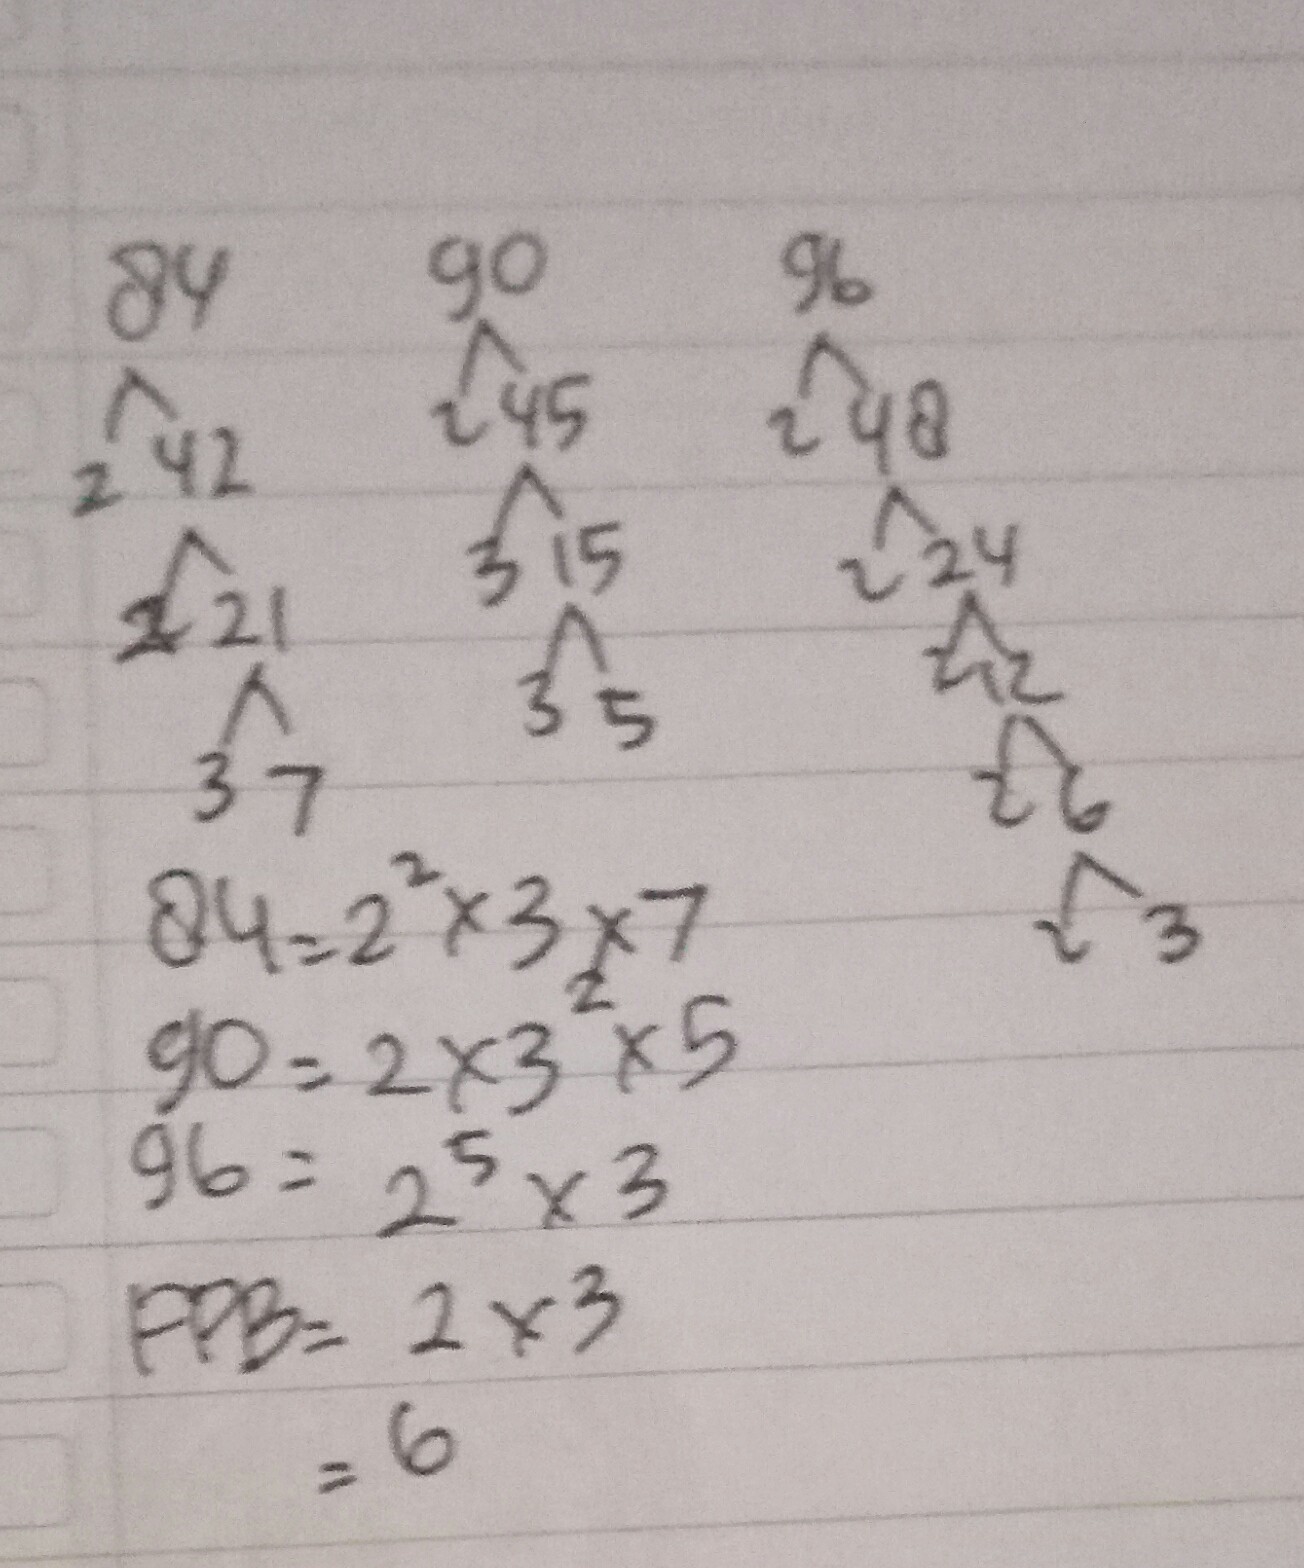 84 90 96
2 42 2 45 2 48
2 21 3 15 2 24
3 7 3 5 2 12
2 6
2 3
84 = 2² × 3 × 7
90 = 2 × 3² × 5
96 = 2⁵ × 3
FPB = 2 × 3
= 6